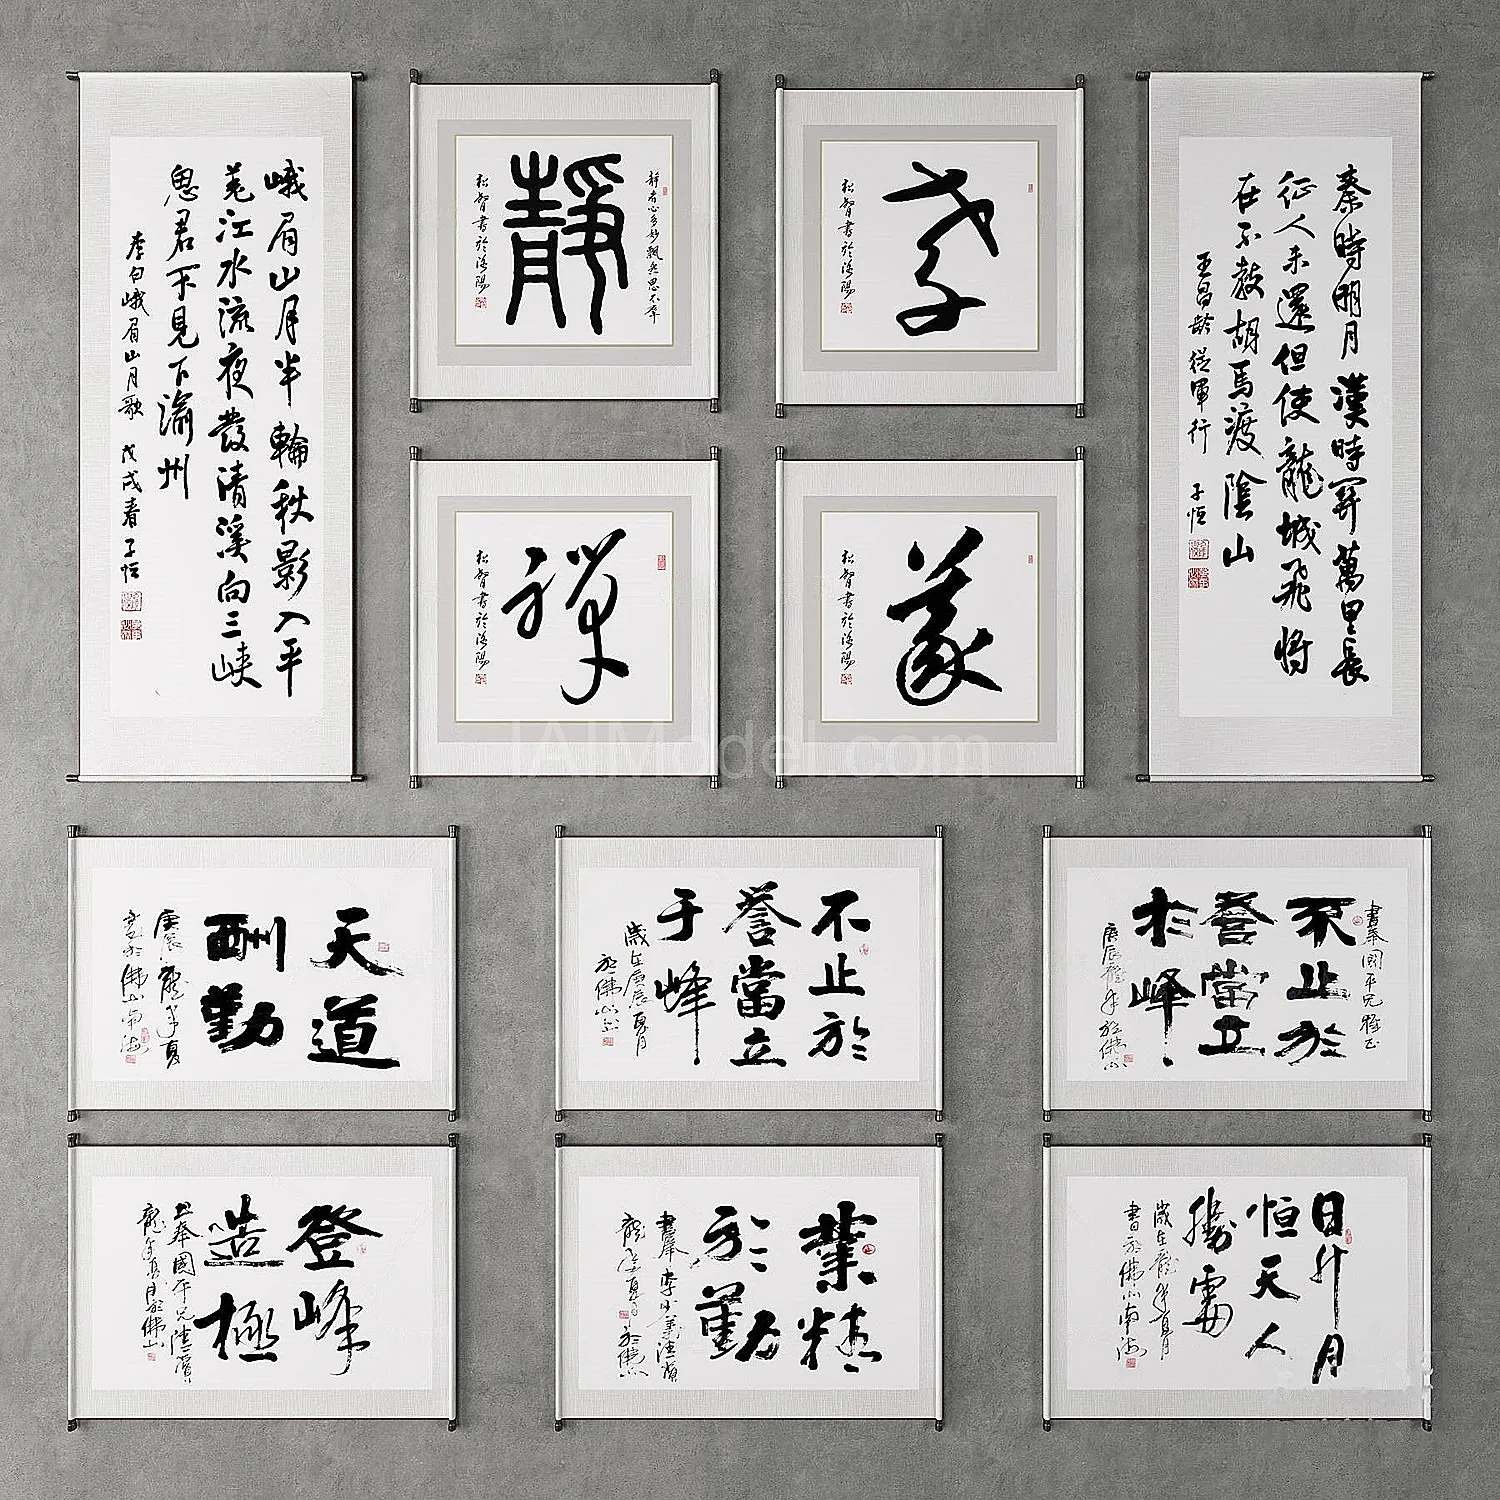 峨眉山月半輪秋影入平
羌江水流夜發清溪向三峽
思君不見下渝州
李白峨眉山月歌 戊戌春 子恒
静者心多妙飄然思不羣
靜
松智書於洛陽
孝
松智書於洛陽
秦時明月漢時關萬里長
征人未還但使龍城飛將
在不教胡馬渡陰山
王昌龄從軍行 子恒
禪
松智書於洛陽
義
松智書於洛陽
IAIModel.com
天道
酬勤
庚辰龍年夏
於佛山南海
不止於
譽當立
于峰
歲在庚辰夏月
於佛山
書奉國平兄雅正
不止於
譽當立
於峰
庚辰龍年於佛山
登峰
造極
書奉國平兄清賞
龍年夏月於佛山
業精
於勤
日升月
恒天人
勝
歲在龍年夏月
書於佛山南海